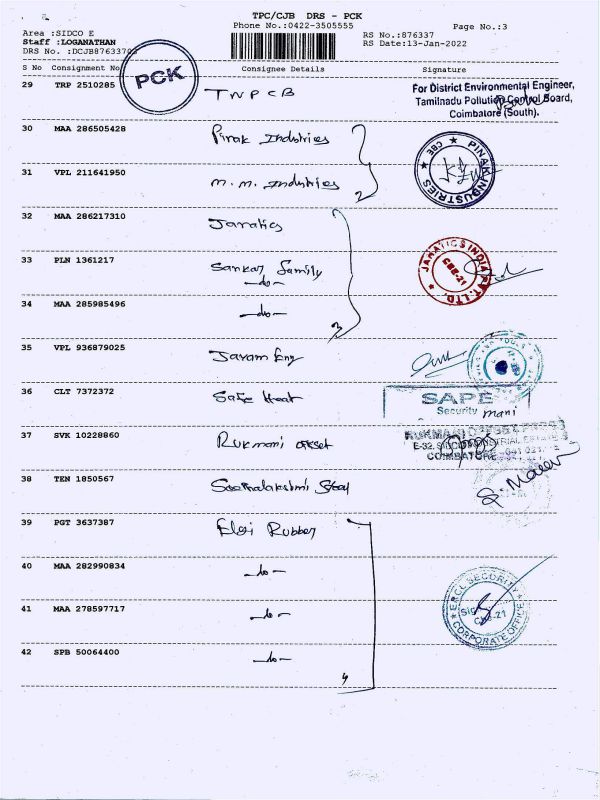 TPC/CJB DRS - PCK
Phone No.:0422-3505555
Page No.:3
Area :SIDCO E
RS No.:876337
Staff :LOGANATHAN
RS Date:13-Jan-2022
DRS No. :DCJB87633703
S No Consignment No Consignee Details Signature
PCK
29 TRP 2510285 TNPCB
For District Environmental Engineer,
Tamilnadu Pollution Control Board,
Coimbatore (South).
30 MAA 286505428 Pinak Industries
PINAK INDUSTRIES ★ CBE ★
31 VPL 211641950 M.M. Industries
2
32 MAA 286217310 Janatics
JANATICS INDIA PVT. LTD.
CBE-21
33 PLN 1361217 Sankar family
-do-
34 MAA 285985496 -do-
3
35 VPL 936879025 Jaram Eng
36 CLT 7372372 Safe Heat
SAPE
Security mani
37 SVK 10228860 Rukmani offset
RUKMANI OFFSET PRESS
E-32, SIDCO INDUSTRIAL ESTATE
COIMBATORE - 641 021.
38 TEN 1850567
39 PGT 3637387 Elgi Rubber
40 MAA 282990834 -do-
41 MAA 278597717 -do-
SECURITY
CORPORATE OFFICE
CBE-21
42 SPB 50064400 -do-
4